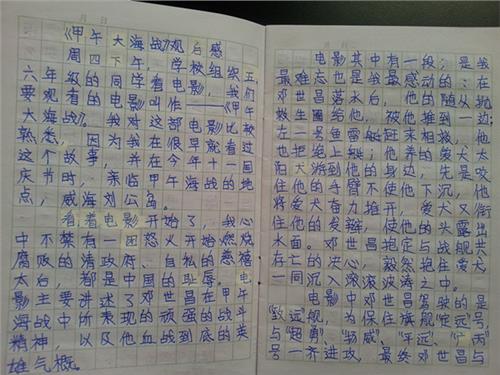 《甲午大海战》观后感
周四下午，学校组织五、
六年级的同学看电影，我们
要观看的电影叫作——《甲午
大海战》。我对这部电影比较
熟悉，因为我在很早就看过
这个故事，并在今年十一国
庆节时，亲临甲午海战的地
点，威海刘公岛。
看着电影开始了，我心
中不禁有一团怒火开始燃烧
腐败的清政府、自私的慈禧
太后，都是中国的耻辱。电
影主要讲述了邓世昌在甲午
海战中所表现的顽强的战斗
精神，以及他血战到底的英
雄气概。
电影其中有一段，是我
最难忘也是我最感动的：在
邓世昌落水后，他的随从抛
救生圈给他，被他推到一边；
在一号鱼雷艇班来相救，他
也把绝上艇；他养的爱犬太
阳犬游到他的身边，先是咬
住他的手臂不使他下沉，他
将爱犬奋力推开，爱犬又衔
住他的发辫，使他的头露出
水面。邓世昌抱定与战舰共
存亡的决心，毅然抱住爱犬
一同沉入滚滚波涛之中。
电影中邓世昌驾驶的是
"致远舰"，为保住旗舰"定远"号，
与"超勇"、"扬威"、"平远"、"广丙"
号一齐进攻，最终邓世昌与